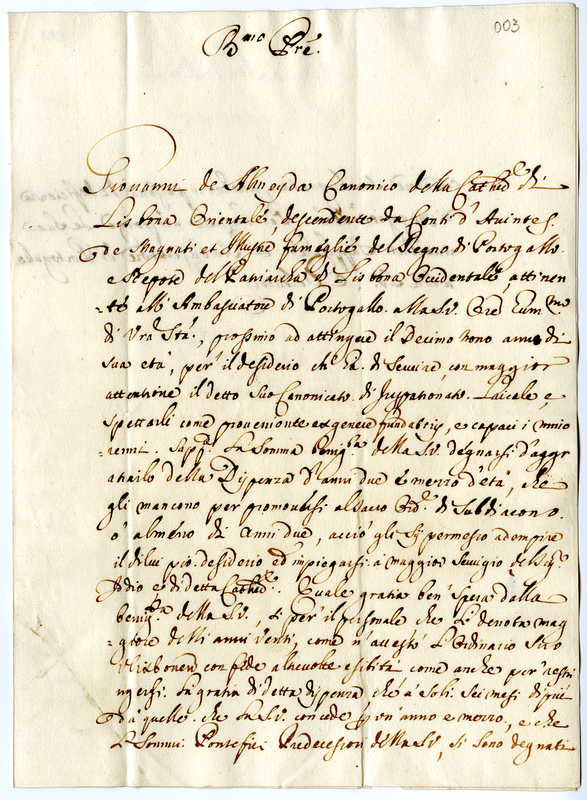 003
B.mo Pré.
Giovanni de Almeyda Canonico della Cathed.e di
Lisbona Orientale, descendente da Conti d'Avintes.
de Magnati et Illustri fameglie del Regno di Portogallo.
e Nepote del Patriarcha di Lisbona Occidentale, attinen
-te all'Ambasciatore di Portogallo alla S.V. Ored Eum.mo
di Vra Stà., prossimo ad attingere il Decimo nono anno di
sua età, per il desiderio ch'ha di servire, con maggior
attentione il detto suo Canonicato di Juspatronato Laicale e,
spettarli come proveniente ex genere fundatoris, e capaci
Supp.a la somma benig.tà della S.V. degnarsi d'aggr
atiarlo della Dispenza d'anni due e mezzo d'età, che
gli mancono per promoversi al sacro Ord.e di Subdiacono.
ò almeno di anni due, acciò gli sij permesso adempire
il di lui pio desiderio ed impiegarsi à maggior servigio del Sig.re
Iddio e di detta Cathed.e. Quale gratia ben' spera dalla
benig.tà della S.V., sì per il personale che Lo denota mag
-giore delli anni venti, come n'attesta L'Ordinario
con fede alnevolte esibita come anche per
la gratia di detta dispenza che à soli sei mesi di più
d'à quello che La S.V. concede p un'anno e mezzo, e che
Li Sommi Pontefici Predecessori della S.V., si sono degnati